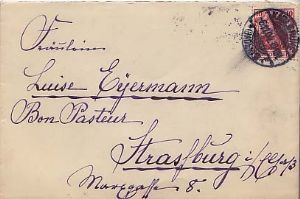 Fräulein
Luise Eyermann
Bon Pasteur
Strassburg i/Elsaß
8.